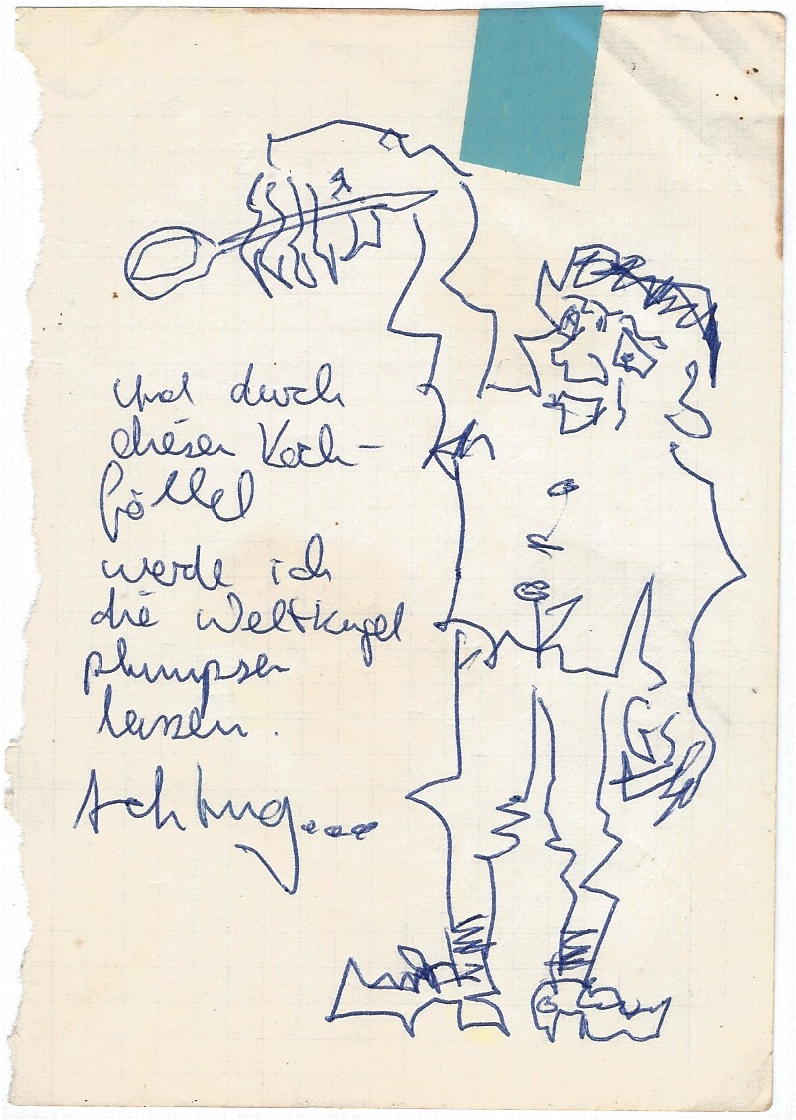 und durch
diesen Koch-
löffel
werde ich
die Weltkugel
plumpsen
lassen.
Achtung...